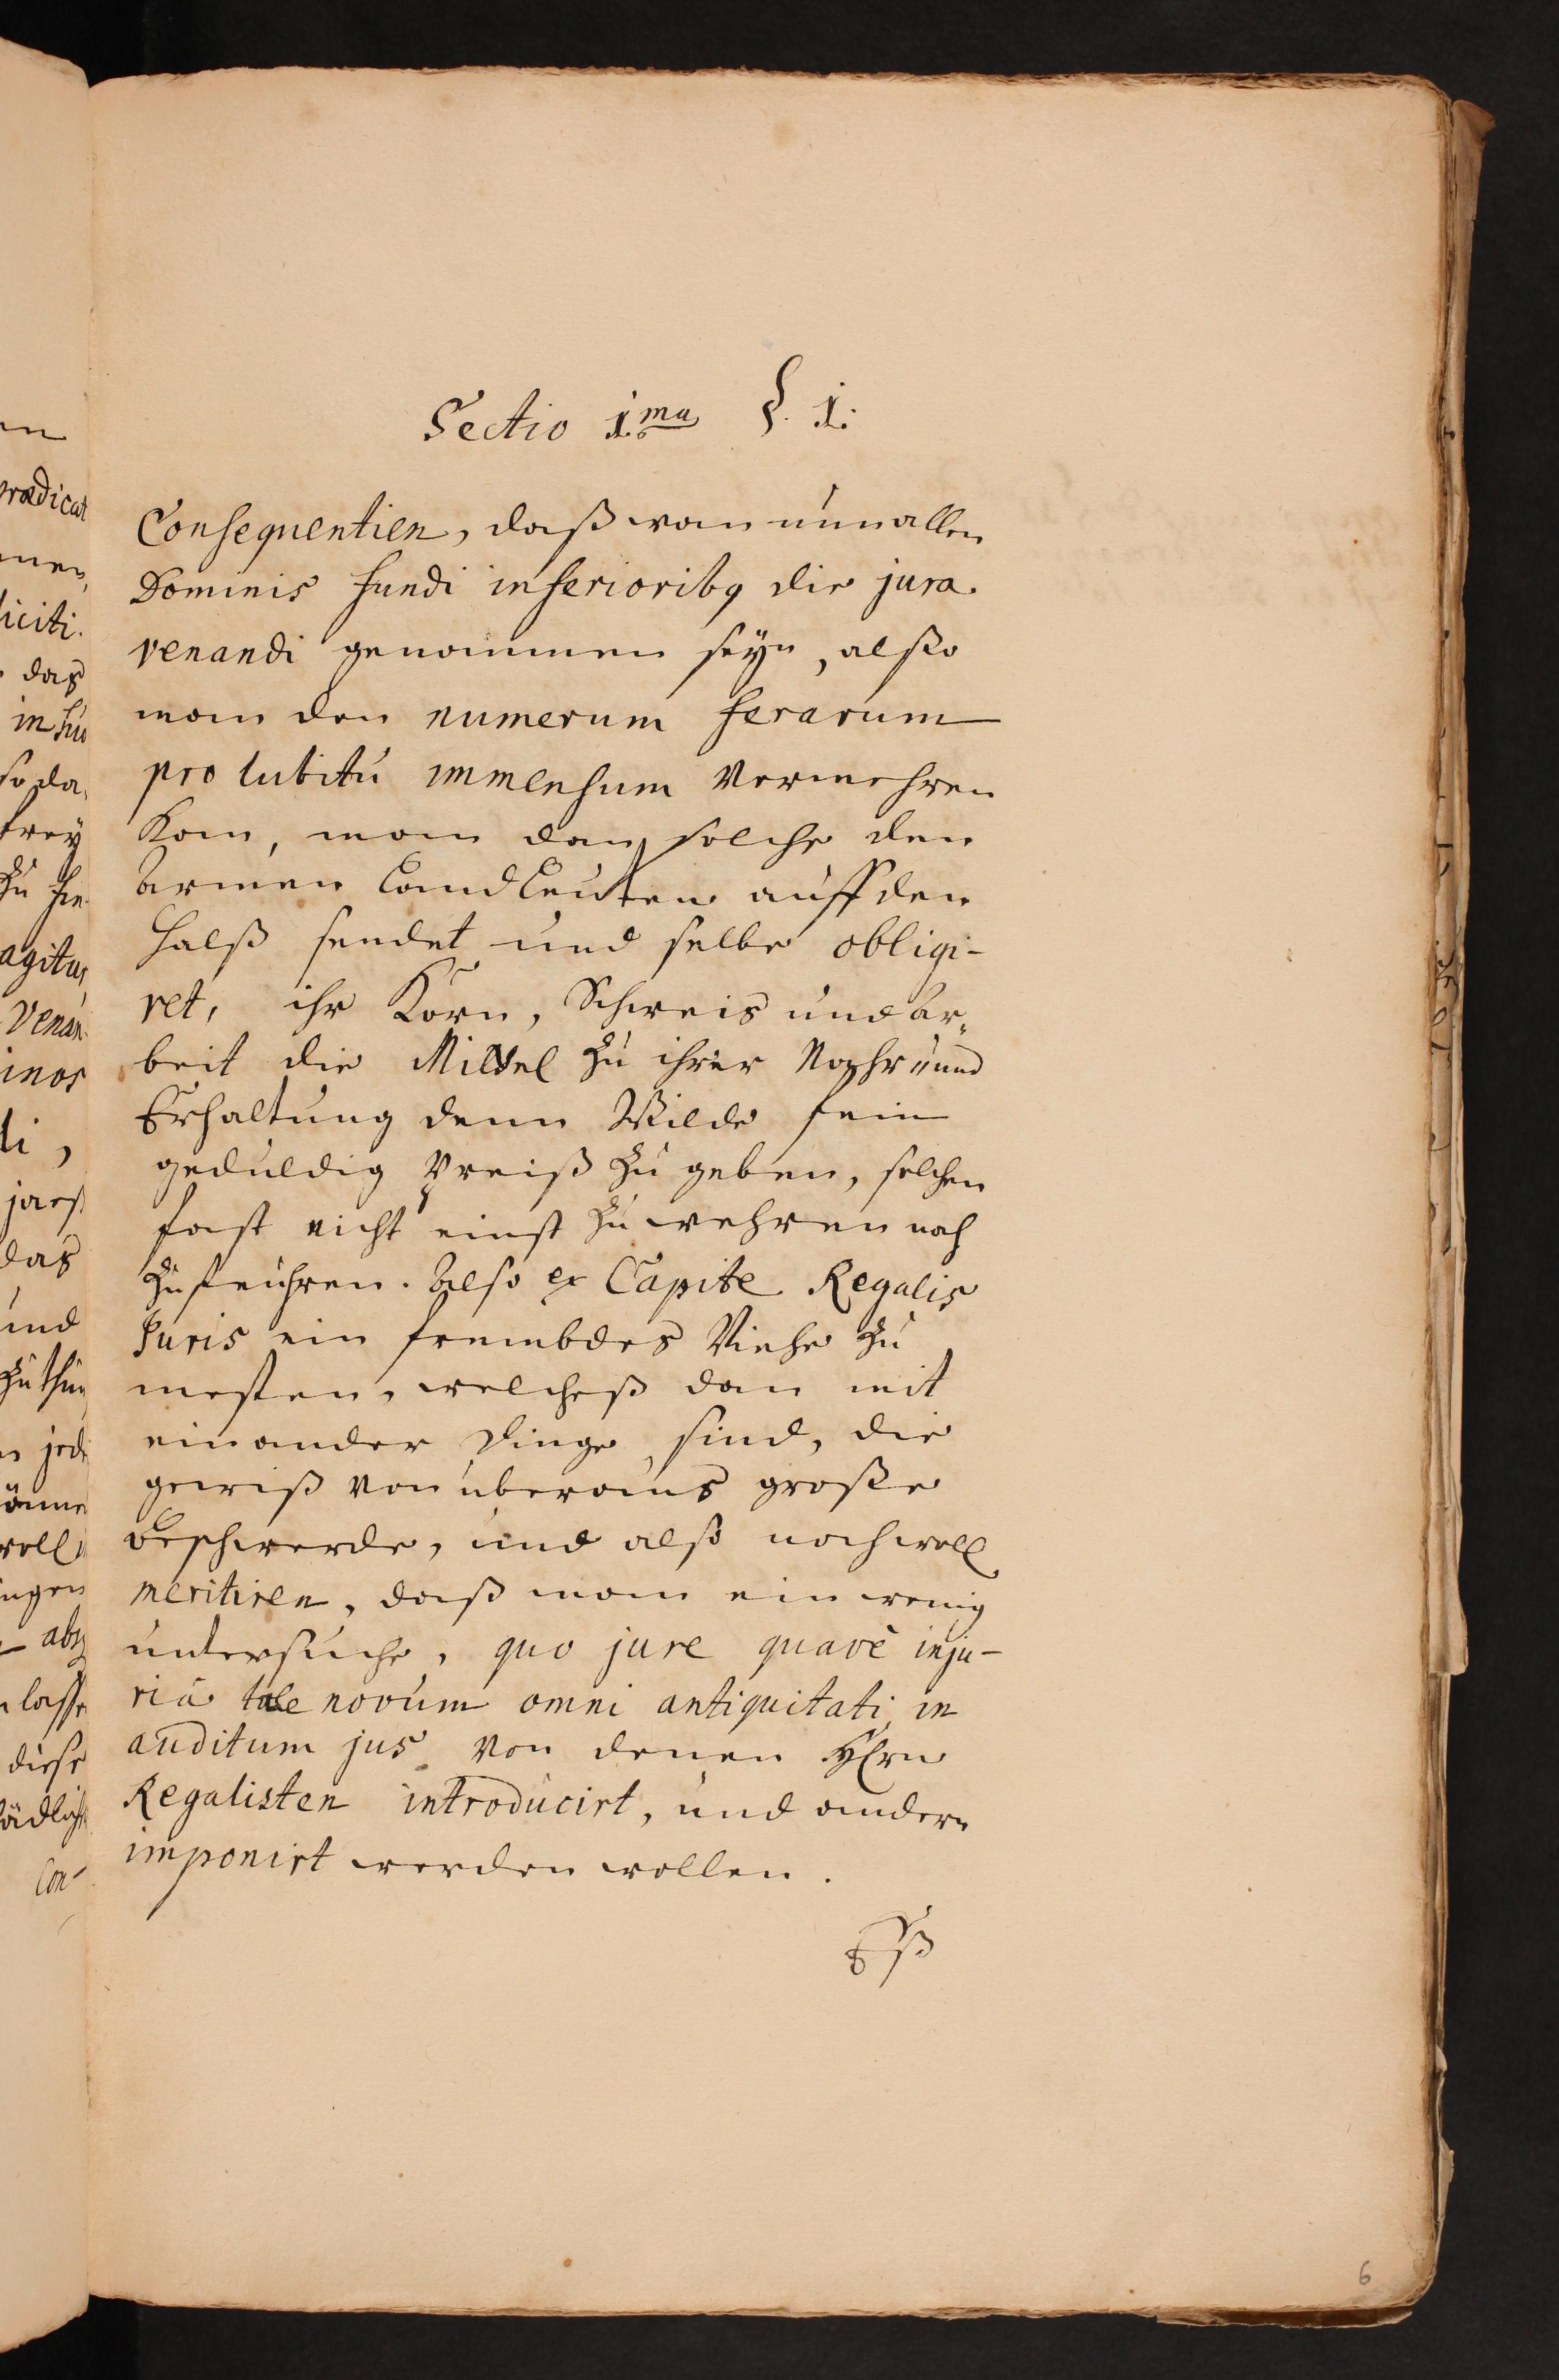 Sectio 1.ma §. 1.
Consequentien, daß wan nun allen
Dominis fundi inferioribq die jura
venandi genommen seyn, alßo
man den numerum ferarum
pro lubitu immensum vermehren
Kan, man dan solche den
Armen LandLeuten auff den
Halß sendet und selbe obligi-
ret, ihr Korn, Schweis und Ar-
beit die Mittel zu ihrer Nahr- und
Erhaltung dem Wilde fein
geduldig preiß zu geben, solchen
fast nicht einst zu wehren noch
zu steuhren. Also ex Capite Regalis
Juris ein frembdes Viehe zu
mesten, welcheß dan mit
einander Dinge sind, die
gewiß von uberaus große
Beschwerde, und also noch woll
meritiren, daß man ein wenig
untersuche, quo jure quavè inju-
riâ tale novum omni antiquitati in
auditum jus von denen Hern
Regalisten introducirt, und andern
imponirt werden wollen.
Eß
6
prædicat
liciti.
das
in suo
so da,
frey
agitur,
Venan-
inos
das
und
zu thun
diese
Con-